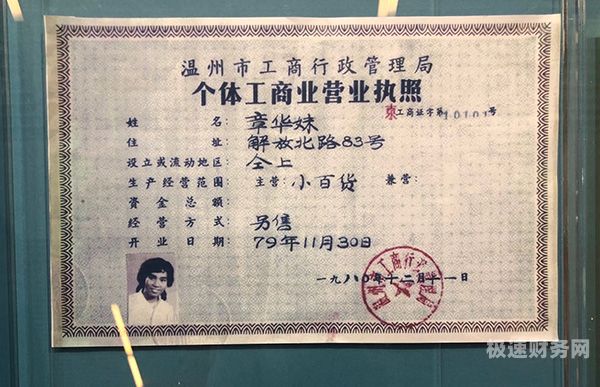 温州市工商行政管理局
个体工商业营业执照
东工商证字第10101号
姓名：章华妹
住址：解放北路83号
设立或流动地区：仝上
生产经营范围：主营：小百货 兼营：
资金总额：
经营方式：另售
开业日期：79年11月30日
一九八〇年十二月十一日
极速财务网